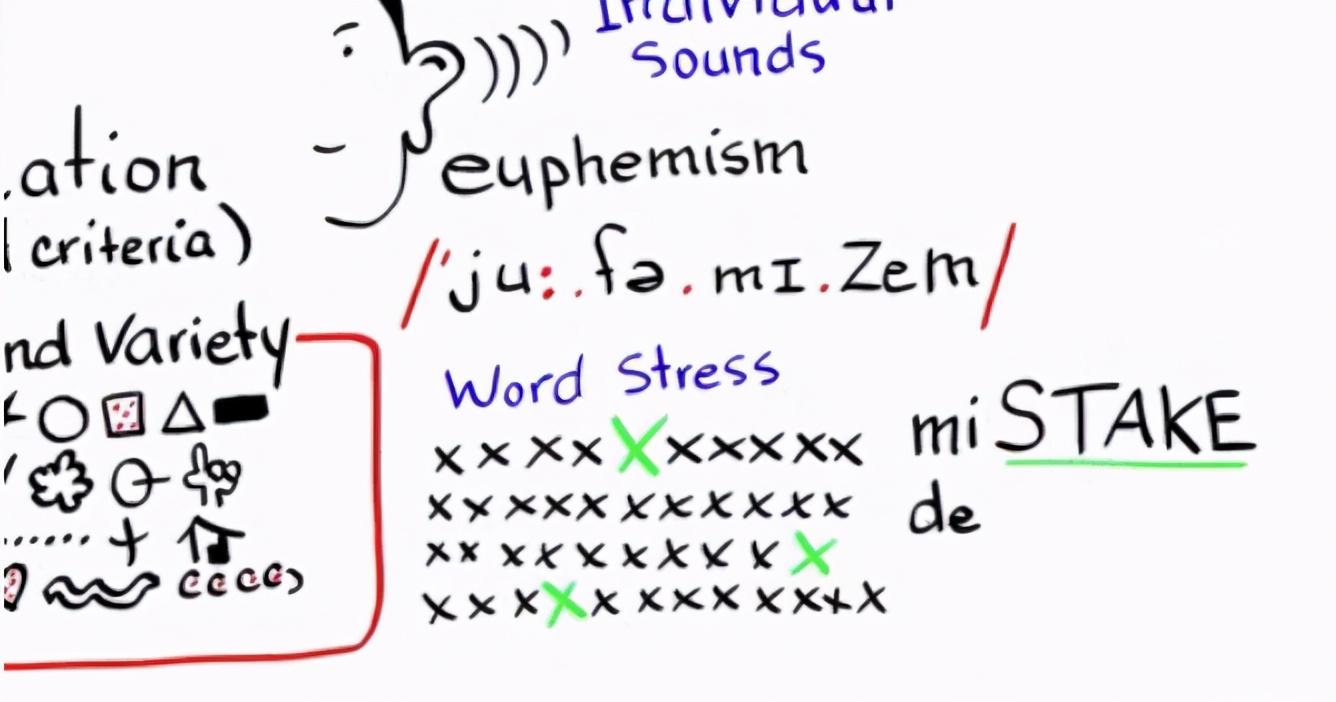 Individual
Sounds
ation
criteria)
euphemism
/'ju:.fə.mɪ.Zem/
nd Variety
Word Stress
x x x x X x x x x x x
x x x x x x x x x x x
x x x x x x x x x X
x x x X x x x x x x x x
miSTAKE
de